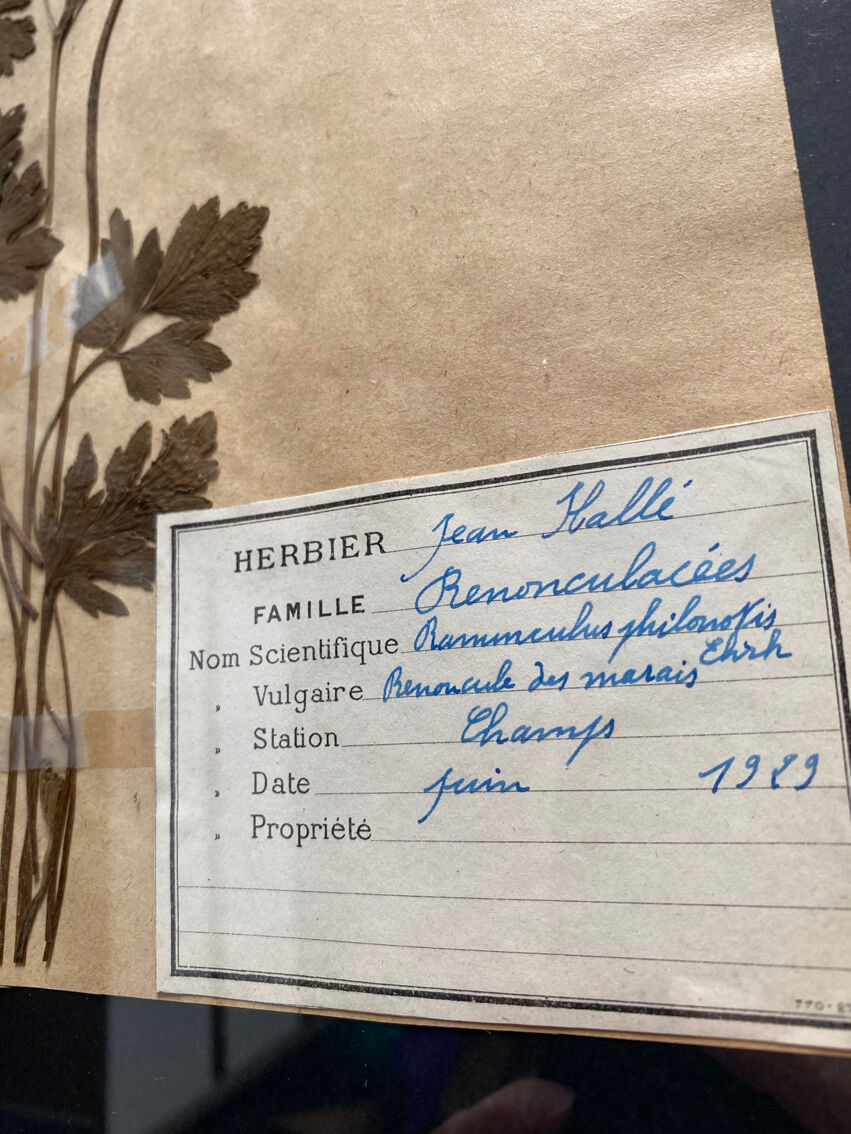 HERBIER Jean Hallé
FAMILLE Renonculacées
Nom Scientifique Ranunculus philonotis
Ehrh
„ Vulgaire Renoncule des marais
„ Station Champs
„ Date juin 1929
„ Propriété